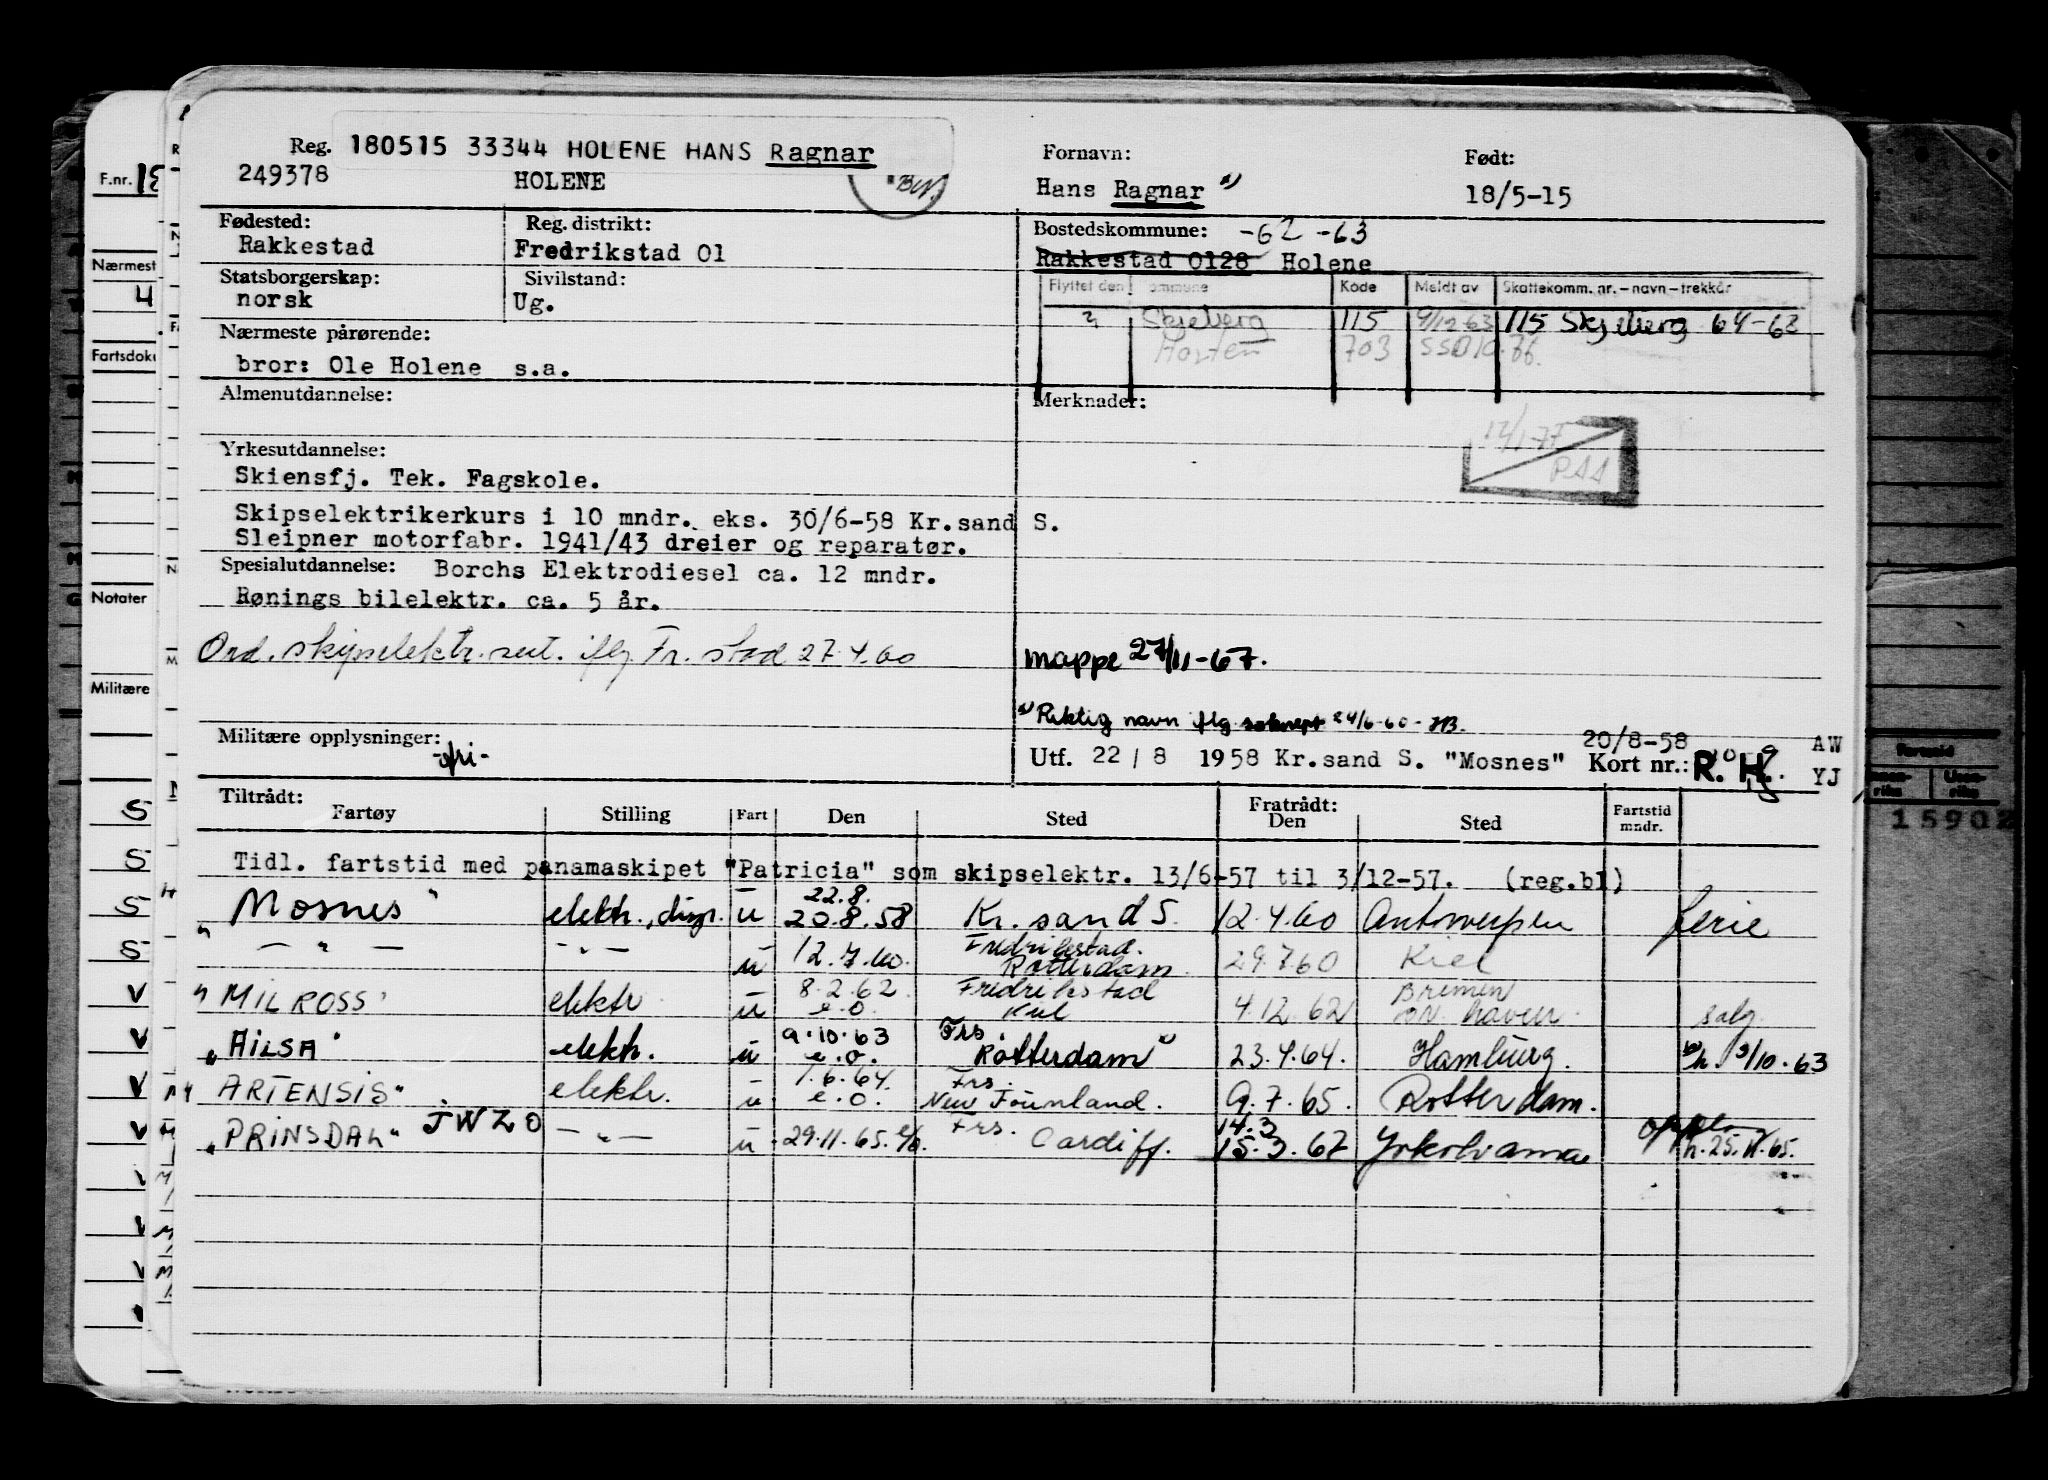 Reg. 180515 33344 HOLENE HANS Ragnar
249378 HOLENE
Fornavn:
Hans Ragnar x)
Født:
18/5-15
Fødested:
Rakkestad
Reg. distrikt:
Fredrikstad 01
Bostedskommune: -62 -63
Rakkestad 0128 Holene
Statsborgerskap:
norsk
Sivilstand:
Ug.
Flyttet den ommune Kode Meldt av Skattekomm. nr. – navn – trekkår
Skjeberg 115 9/12 63 115 Skjeberg 64-63
Horten 703 SSD10.66.
Nærmeste pårørende:
bror: Ole Holene s.a.
Almenutdannelse:
Merknader:
12/1-77
Yrkesutdannelse:
Skiensfj. Tek. Fagskole.
Skipselektrikerkurs i 10 mndr. eks. 30/6-58 Kr.sand S.
Sleipner motorfabr. 1941/43 dreier og reparatør.
Spesialutdannelse: Borchs Elektrodiesel ca. 12 mndr.
Rønings bilelektr. ca. 5 år.
Ord. skipselektr.sert. iflg Fr. stad 27.4.60
mappe 27/11-67.
x) Riktig navn iflg 24/6-60 - HB.
Militære opplysninger:
-fri-
Utf. 22 / 8 1958 Kr.sand S. "Mosnes"
20/8-58
Kort nr.: R. H. AW
YJ
Tiltrådt:
Fartøy Stilling Fart Den Sted
Fratrådt:
Den Sted Fartstid
mndr.
Tidl. fartstid med panamaskipet "Patricia" som skipselektr. 13/6-57 til 3/12-57. (reg.bl)
22.8.
"Mosnes" elektr., u 20.8.58 Kr. sand S. 12.4.60 Antwerpen ferie
— " — — " — u 12.7.60. Fredrikstad.
Rotterdam 29.7.60 Kiel
"MILROSS" elektr u 8.2.62 Fredrikstad
e.o. Kiel 4.12.62 Bremen
haven. salg.
"AILSA" elektr. u 9.10.63 Frs
e.o. Rotterdam 23.4.64. Hamburg. h. 9/10.63
"ARTENSIS" elektr. u 1.6.64. Frs.
e.o. New Founland. 9.7.65. Rotterdam.
"PRINSDAL" JWZO — " — u 29.11.65. Frs. Cardiff. 14.3
15.3.67 Yokohama h. 25.11.65.
F.nr.
Nærmest
Fartsdoku
Notater
Militære
Fartstid
15902